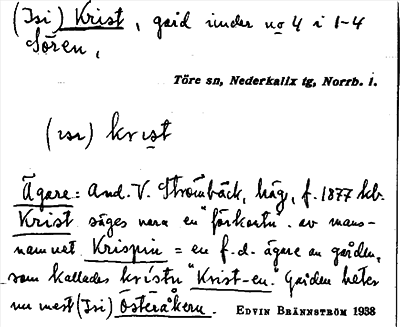 (Isi) Krist, gård under no 4 i 1-4
Sören,
Töre sn, Nederkalix tg, Norrb. l.
(ɪsɪ) krɪst
Ägare: And. V. Strömbäck, häg, f. 1877 kb.
Krist säges vara en "förkortn". av mans-
namnet Krispin = en f.d. ägare av gården,
som kallades kristn "Krist-en". Gården heter
nu mest (Isi) Österåkern. EDVIN BRÄNNSTRÖM 1938